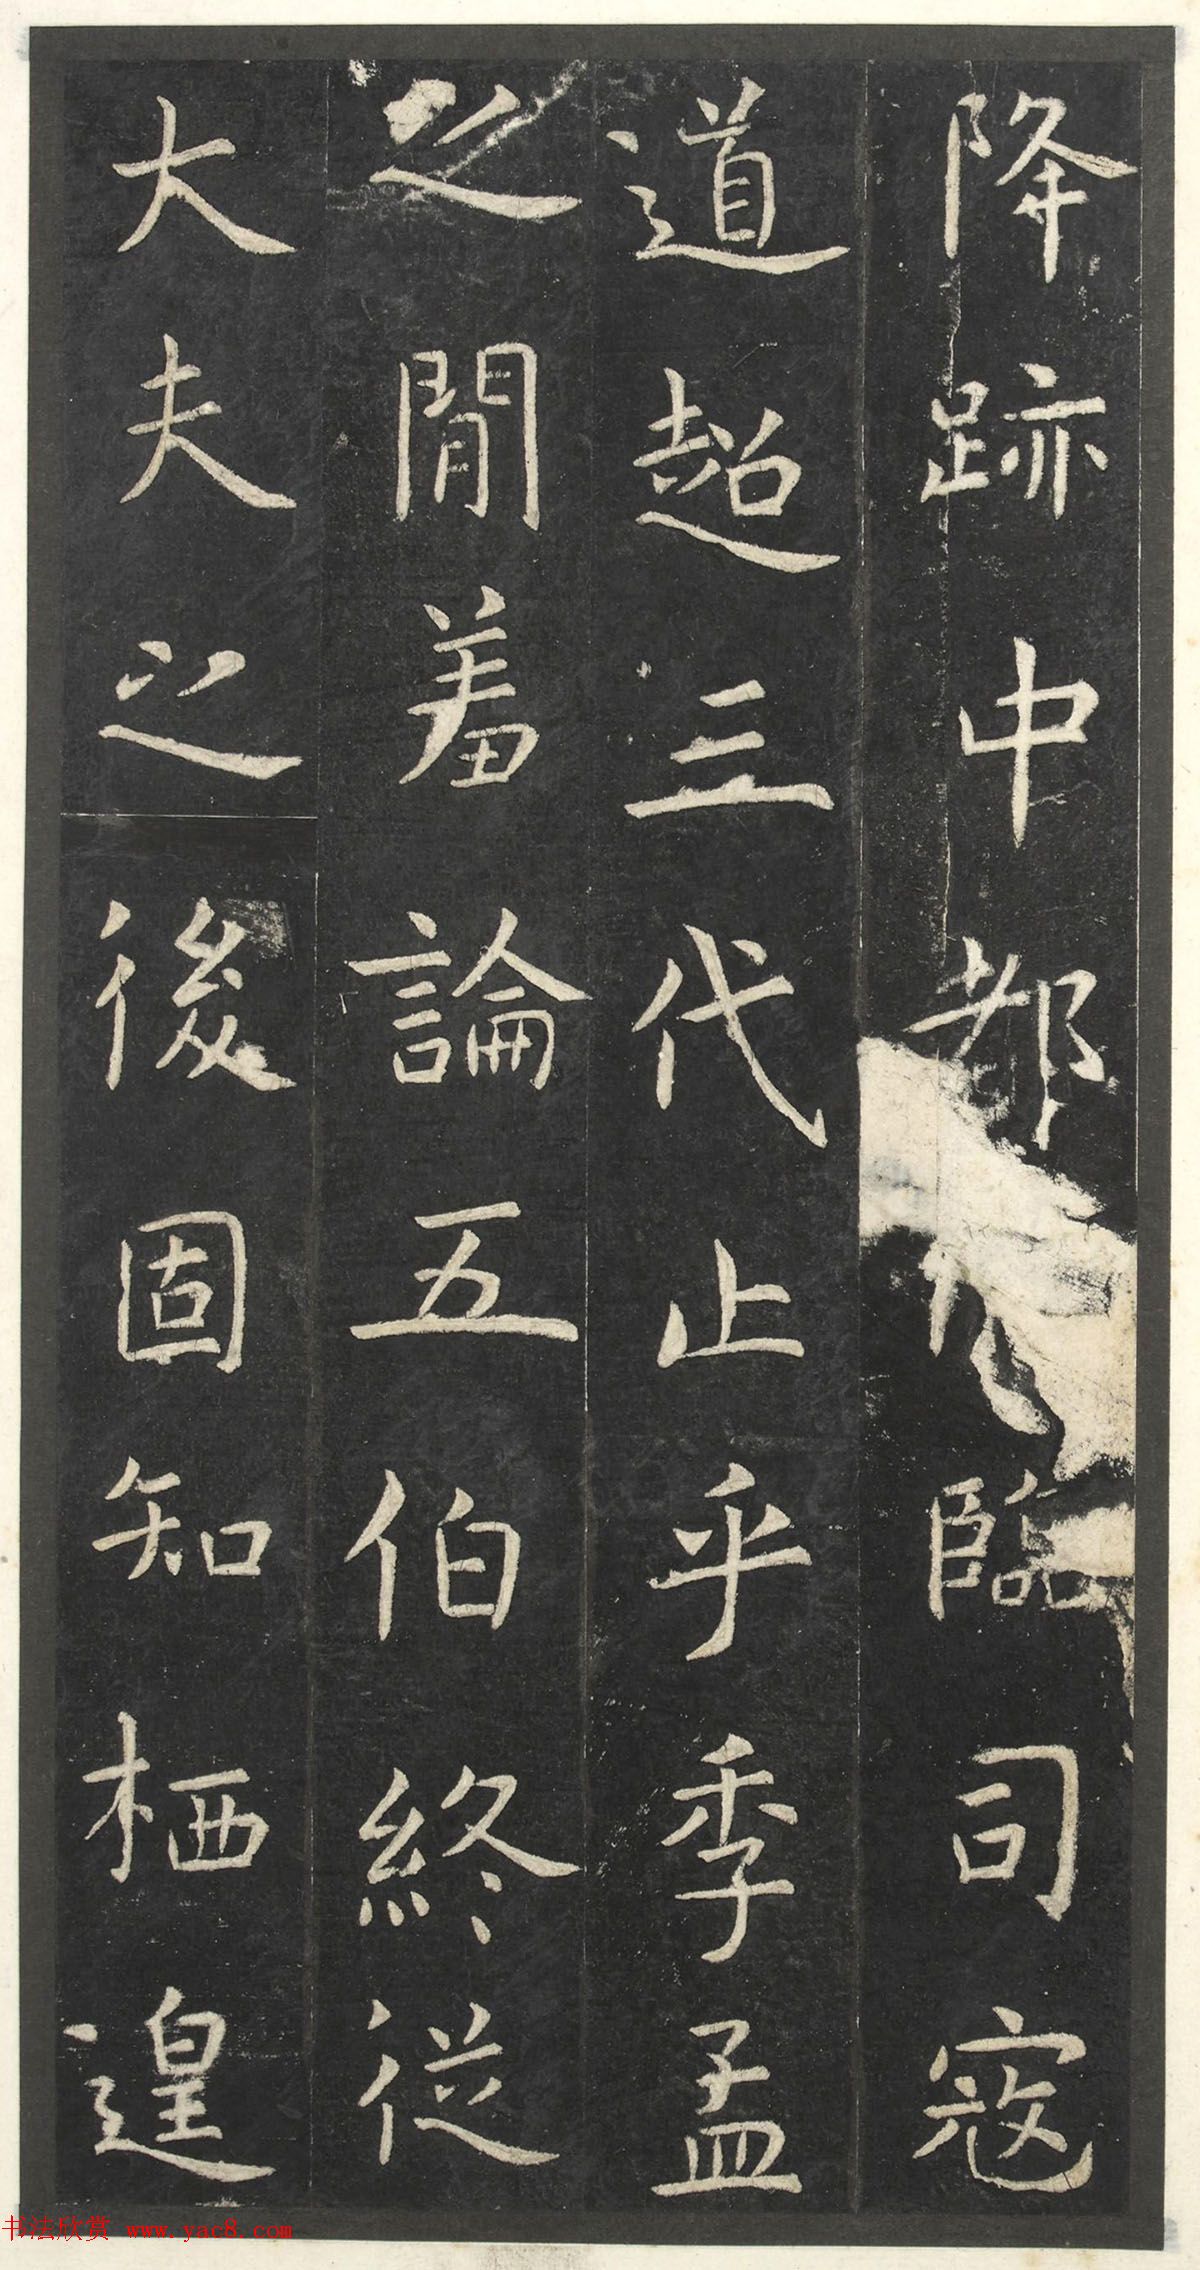 降跡中都臨司寇
道超三代止乎季孟
之閒羞論五伯終從
大夫之後固知栖遑
书法欣赏 www.yac8.com